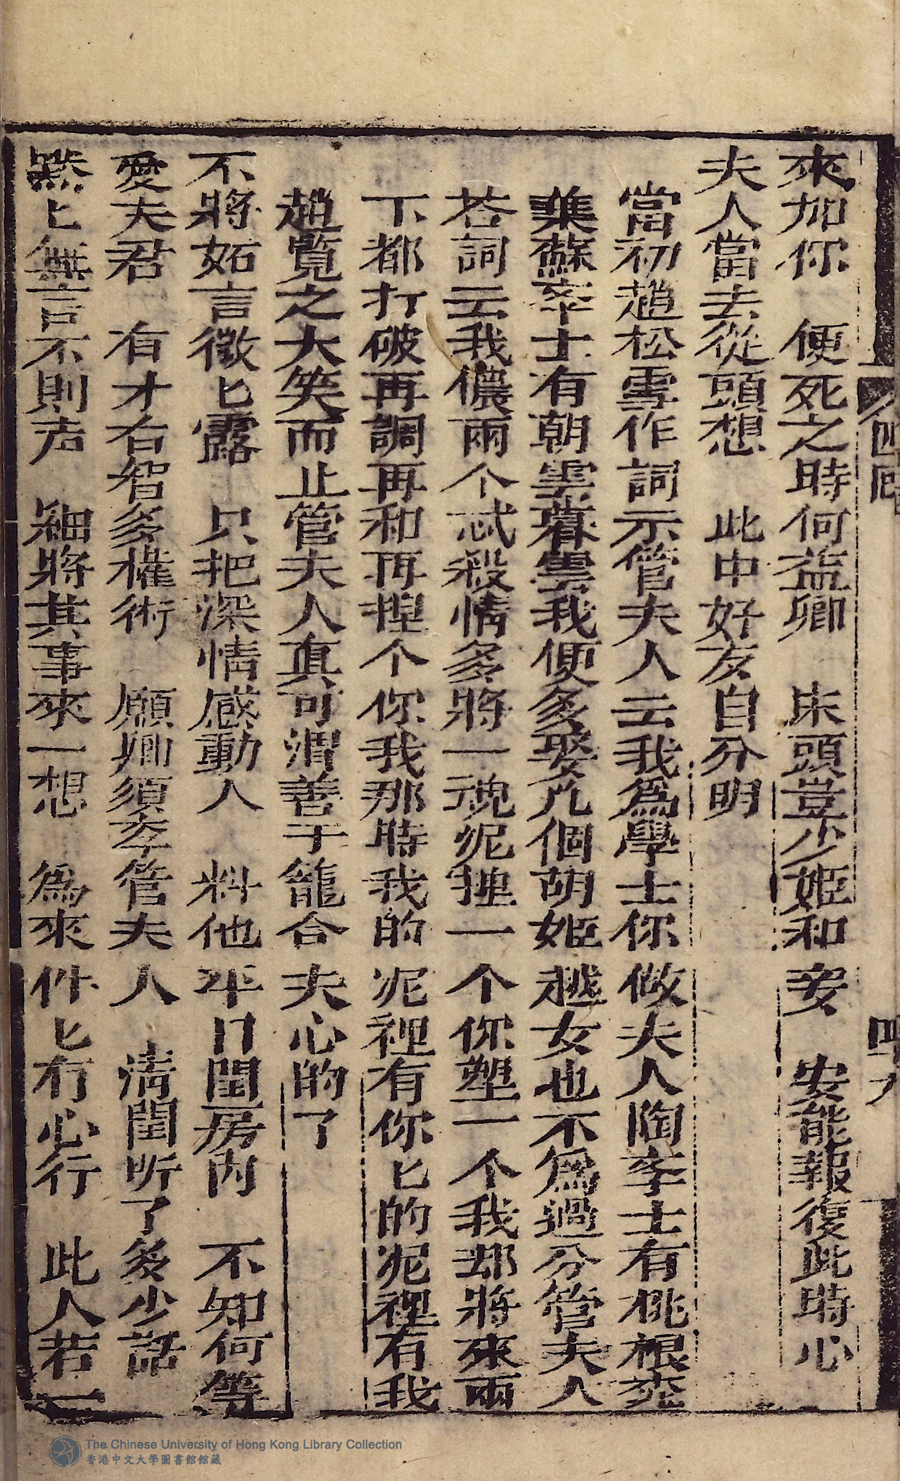 來加你　便死之時何益卿　床頭豈少姬和妾　安能報復此時心
夫人當去從頭想　此中好友自分明
當初趙松雪作詞示管夫人云我為學士你做夫人陶李士有桃根桃
葉蘇李士有朝雲暮雲我便多娶几個胡姬越女也不為過分管夫人
答詞云我儂兩个忒殺情多將一塊泥揑一个你塑一个我却將來兩
下都打破再調再和再揑个你我那時我的泥裡有你匕的泥裡有我
趙覽之大笑而止管夫人真可謂善于籠合夫心的了
不將妬言徵匕露　只把深情感動人　料他平日閨房內　不知何等
愛夫君　有才右智多權術　願卿須李管夫人　淸閨听了多少話
黙匕無言不則声　細將其事來一想　為來件匕有心行　此人若一
四回
四十九
The Chinese University of Hong Kong Library Collection
香港中文大學圖書館館藏